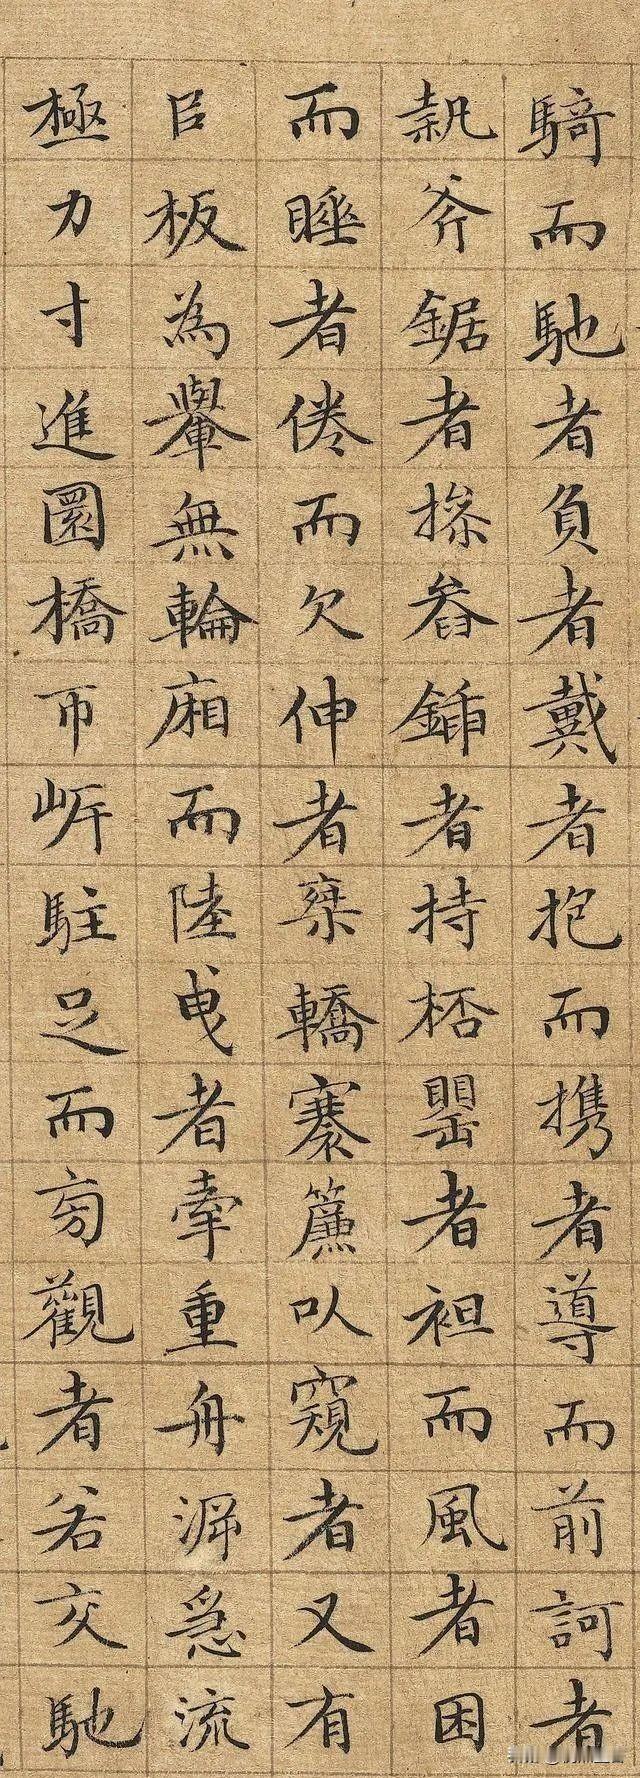 騎而馳者負者戴者抱而攜者導而前訶者
執斧鋸者捺畚鍤者持桮罌者袒而風者困
而睡者倦而欠伸者棄轎褰簾以窺者又有
以板為轝無輪廂而陸曳者牽重舟泝急流
極力寸進圜橋帀岸駐足而旁觀者若交馳